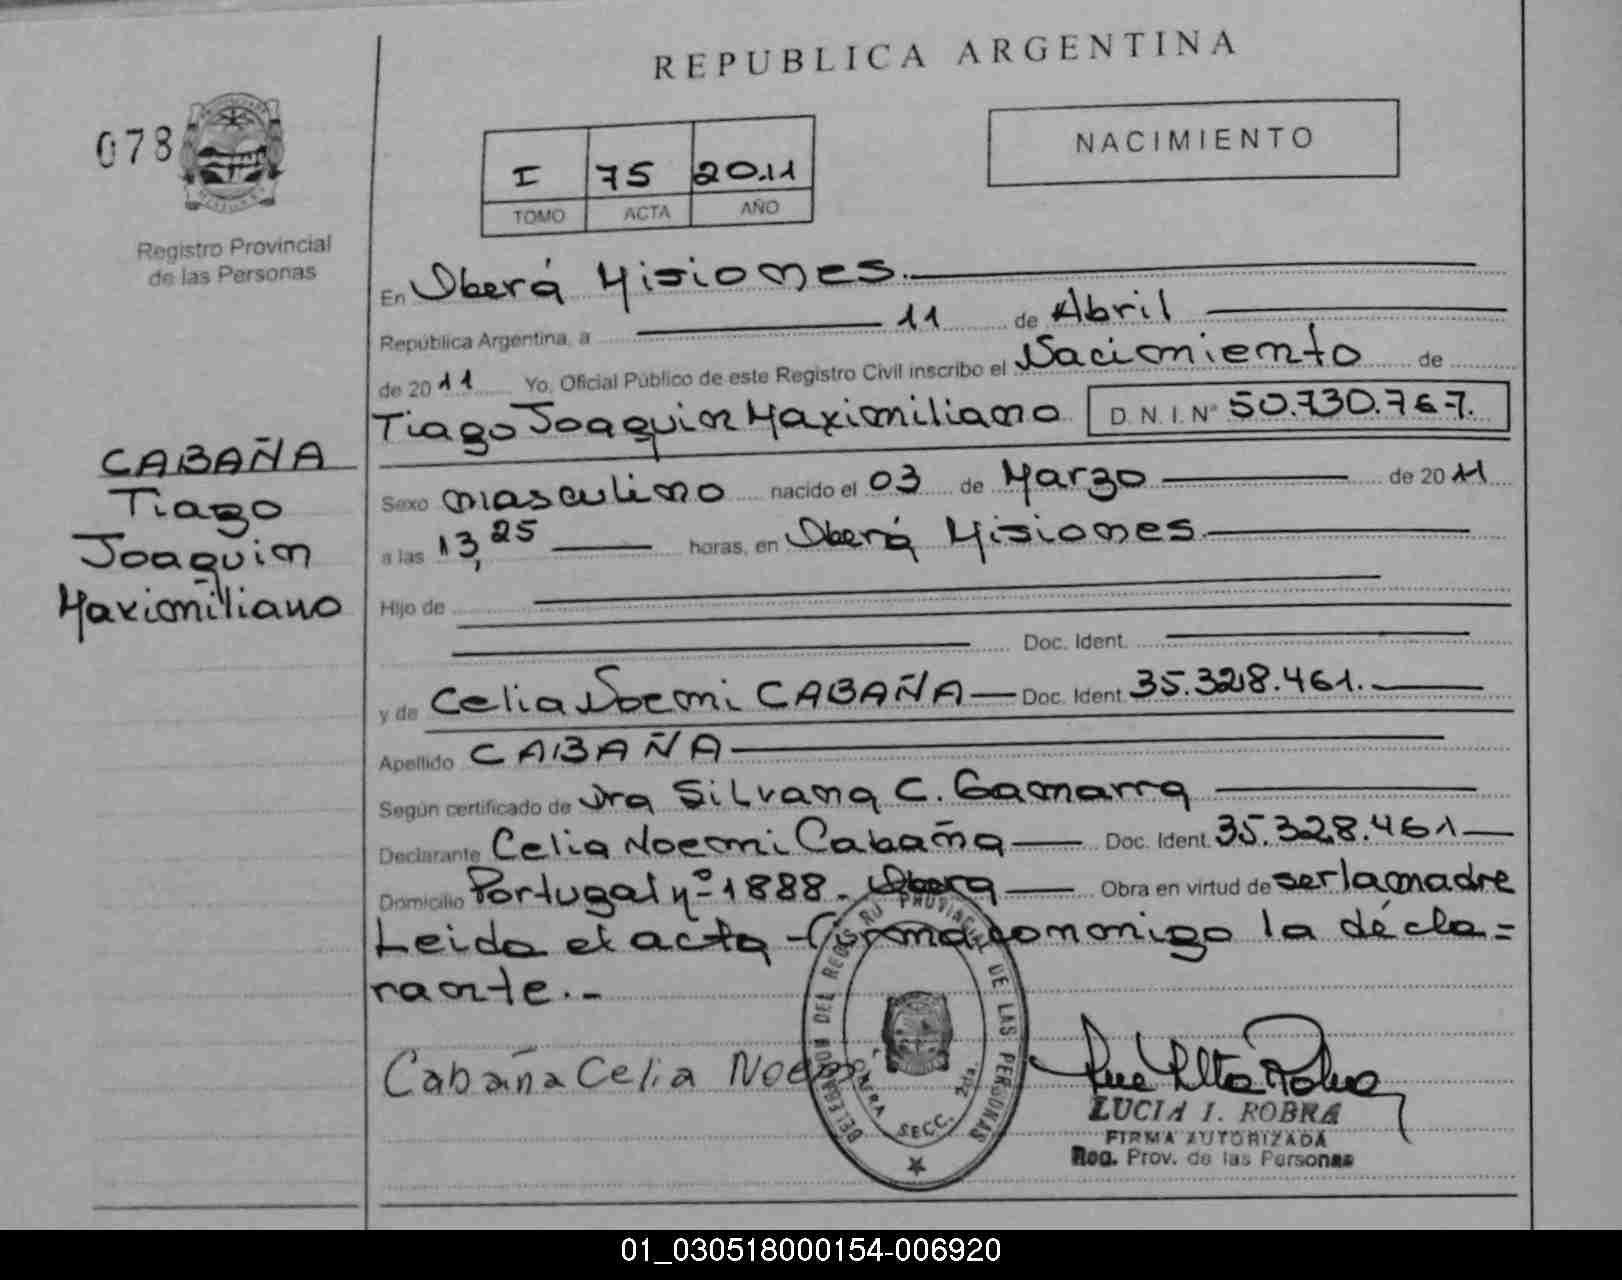 REPUBLICA ARGENTINA
078
Registro Provincial
de las Personas
I 75 2011
TOMO ACTA AÑO
NACIMIENTO
En Oberá Misiones.
República Argentina, a 11 de Abril
de 2011 Yo, Oficial Público de este Registro Civil inscribo el Nacimiento de
Tiago Joaquin Maximiliano D.N.I.Nº 50.730.767.
CABAÑA
Tiago
Joaquin
Maximiliano
Sexo masculino nacido el 03 de Marzo de 2011
a las 13,25 horas, en Oberá Misiones
Hijo de
Doc. Ident.
y de Celia Noemi CABAÑA Doc. Ident. 35.328.461.
Apellido CABAÑA
Según certificado de Dra Silvana C. Gamarra
Declarante Celia Noemi Cabaña Doc. Ident. 35.328.461
Domicilio Portugal nº 1888. Obera Obra en virtud de ser la madre
Leida el acta firma conmigo la decla=
rante.-
Cabaña Celia Noemi
DELEGACION DEL REGISTRO PROVINCIAL DE LAS PERSONAS
SECC. 2da.
LUCIA I. ROBRA
FIRMA AUTORIZADA
Reg. Prov. de las Personas
01_030518000154-006920